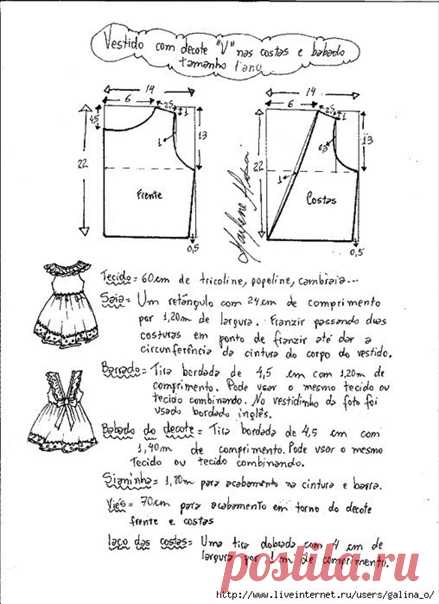 Vestido com decote "V" nas costas e babado
tamanho 1 ano
14
6
2,5
1
4,5
13
22
1
Frente
0,5
14
6
2,5
1
13
22
1
Costas
0,5
Marlene Mukai
Tecido = 60cm de tricoline, popeline, cambraia...
Saia = Um retângulo com 24cm de comprimento
por 1,20m de largura. Franzir passando duas
costuras em ponto de franzir até dar a
circunferência da cintura do corpo do vestido.
Barrado = Tira bordada de 4,5 cm com 1,20m de
comprimento. Pode usar o mesmo tecido ou
tecido combinando. No vestidinho da foto foi
usado bordado inglês.
Babado do decote = Tira bordada de 4,5 cm com
1,40m de comprimento. Pode usar o mesmo
Tecido ou tecido combinando.
Sianinha = 1,20m para acabamento na cintura e barra.
Viés = 70cm para acabamento em torno do decote
frente e costas
laço das costas = Uma tira dobada com 4 cm de
largura por 1m de comprimento.
postila.ru
http://www.liveinternet.ru/users/galina_o/